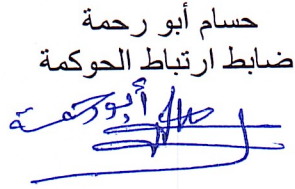 حسام أبو رحمة
ضابط ارتباط الحوكمة
أبو رحمة